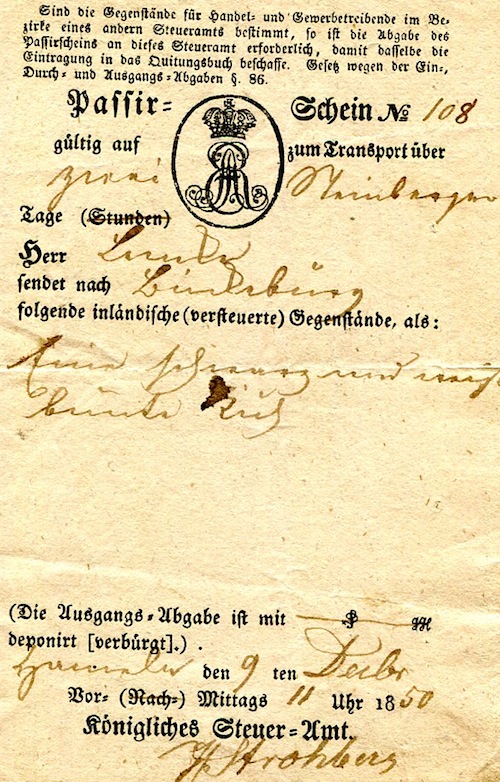 Sind die Gegenstände für Handel- und Gewerbetreibende im Be-
zirke eines andern Steueramts bestimmt, so ist die Abgabe des
Passirscheins an dieses Steueramt erforderlich, damit dasselbe die
Eintragung in das Quitungsbuch beschaffe. Gesetz wegen der Ein-,
Durch- und Ausgangs-Abgaben §. 86.
Passir- Schein № 108
gültig auf zum Transport über
zwei Steinberger
Tage (Stunden)
Herr
sendet nach Bückeburg
folgende inländische (versteuerte) Gegenstände, als:
Eine schwarz und weiß
bunte Kuh
(Die Ausgangs-Abgabe ist mit
deponirt [verbürgt].) .
Hameln den 9 ten Decbr
Vor- (Nach-) Mittags 11 Uhr 1850
Königliches Steuer-Amt.
Strohberg